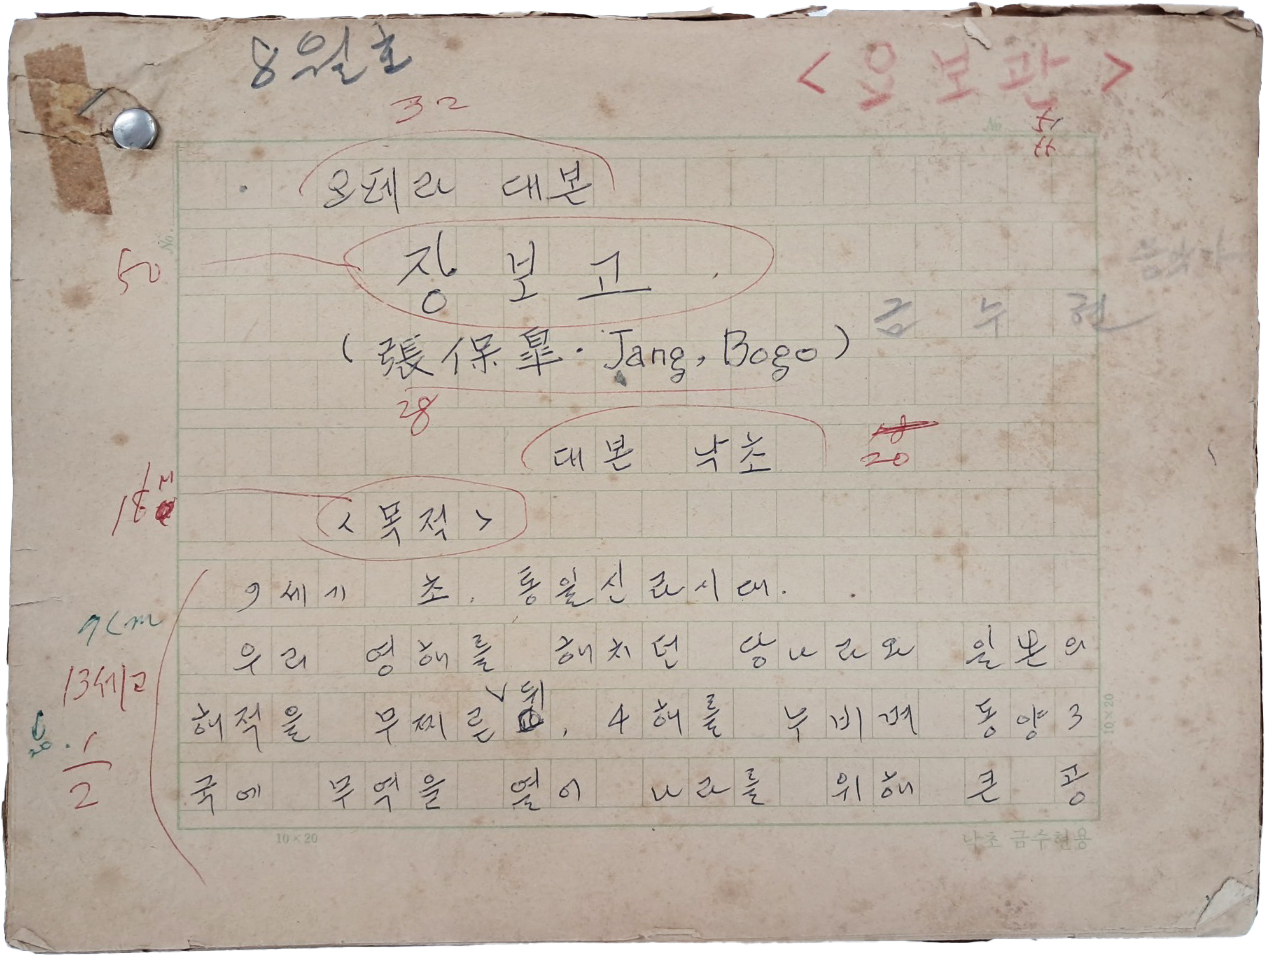 8월호
<요보관>
32
오페라 대본
50
장보고
금수현
(張保皐·Jang, Bogo)
28
대본 낙초
20
18
<목적>
9세기 초. 통일신라시대.
우리 영해를 해치던 당나라와 일본의
해적을 무찌른 뒤, 4해를 누비며 동양3
국에 무역을 열어 나라를 위해 큰 공
9cm
13세고
1/2
10×20
10×20
낙초 금수현용